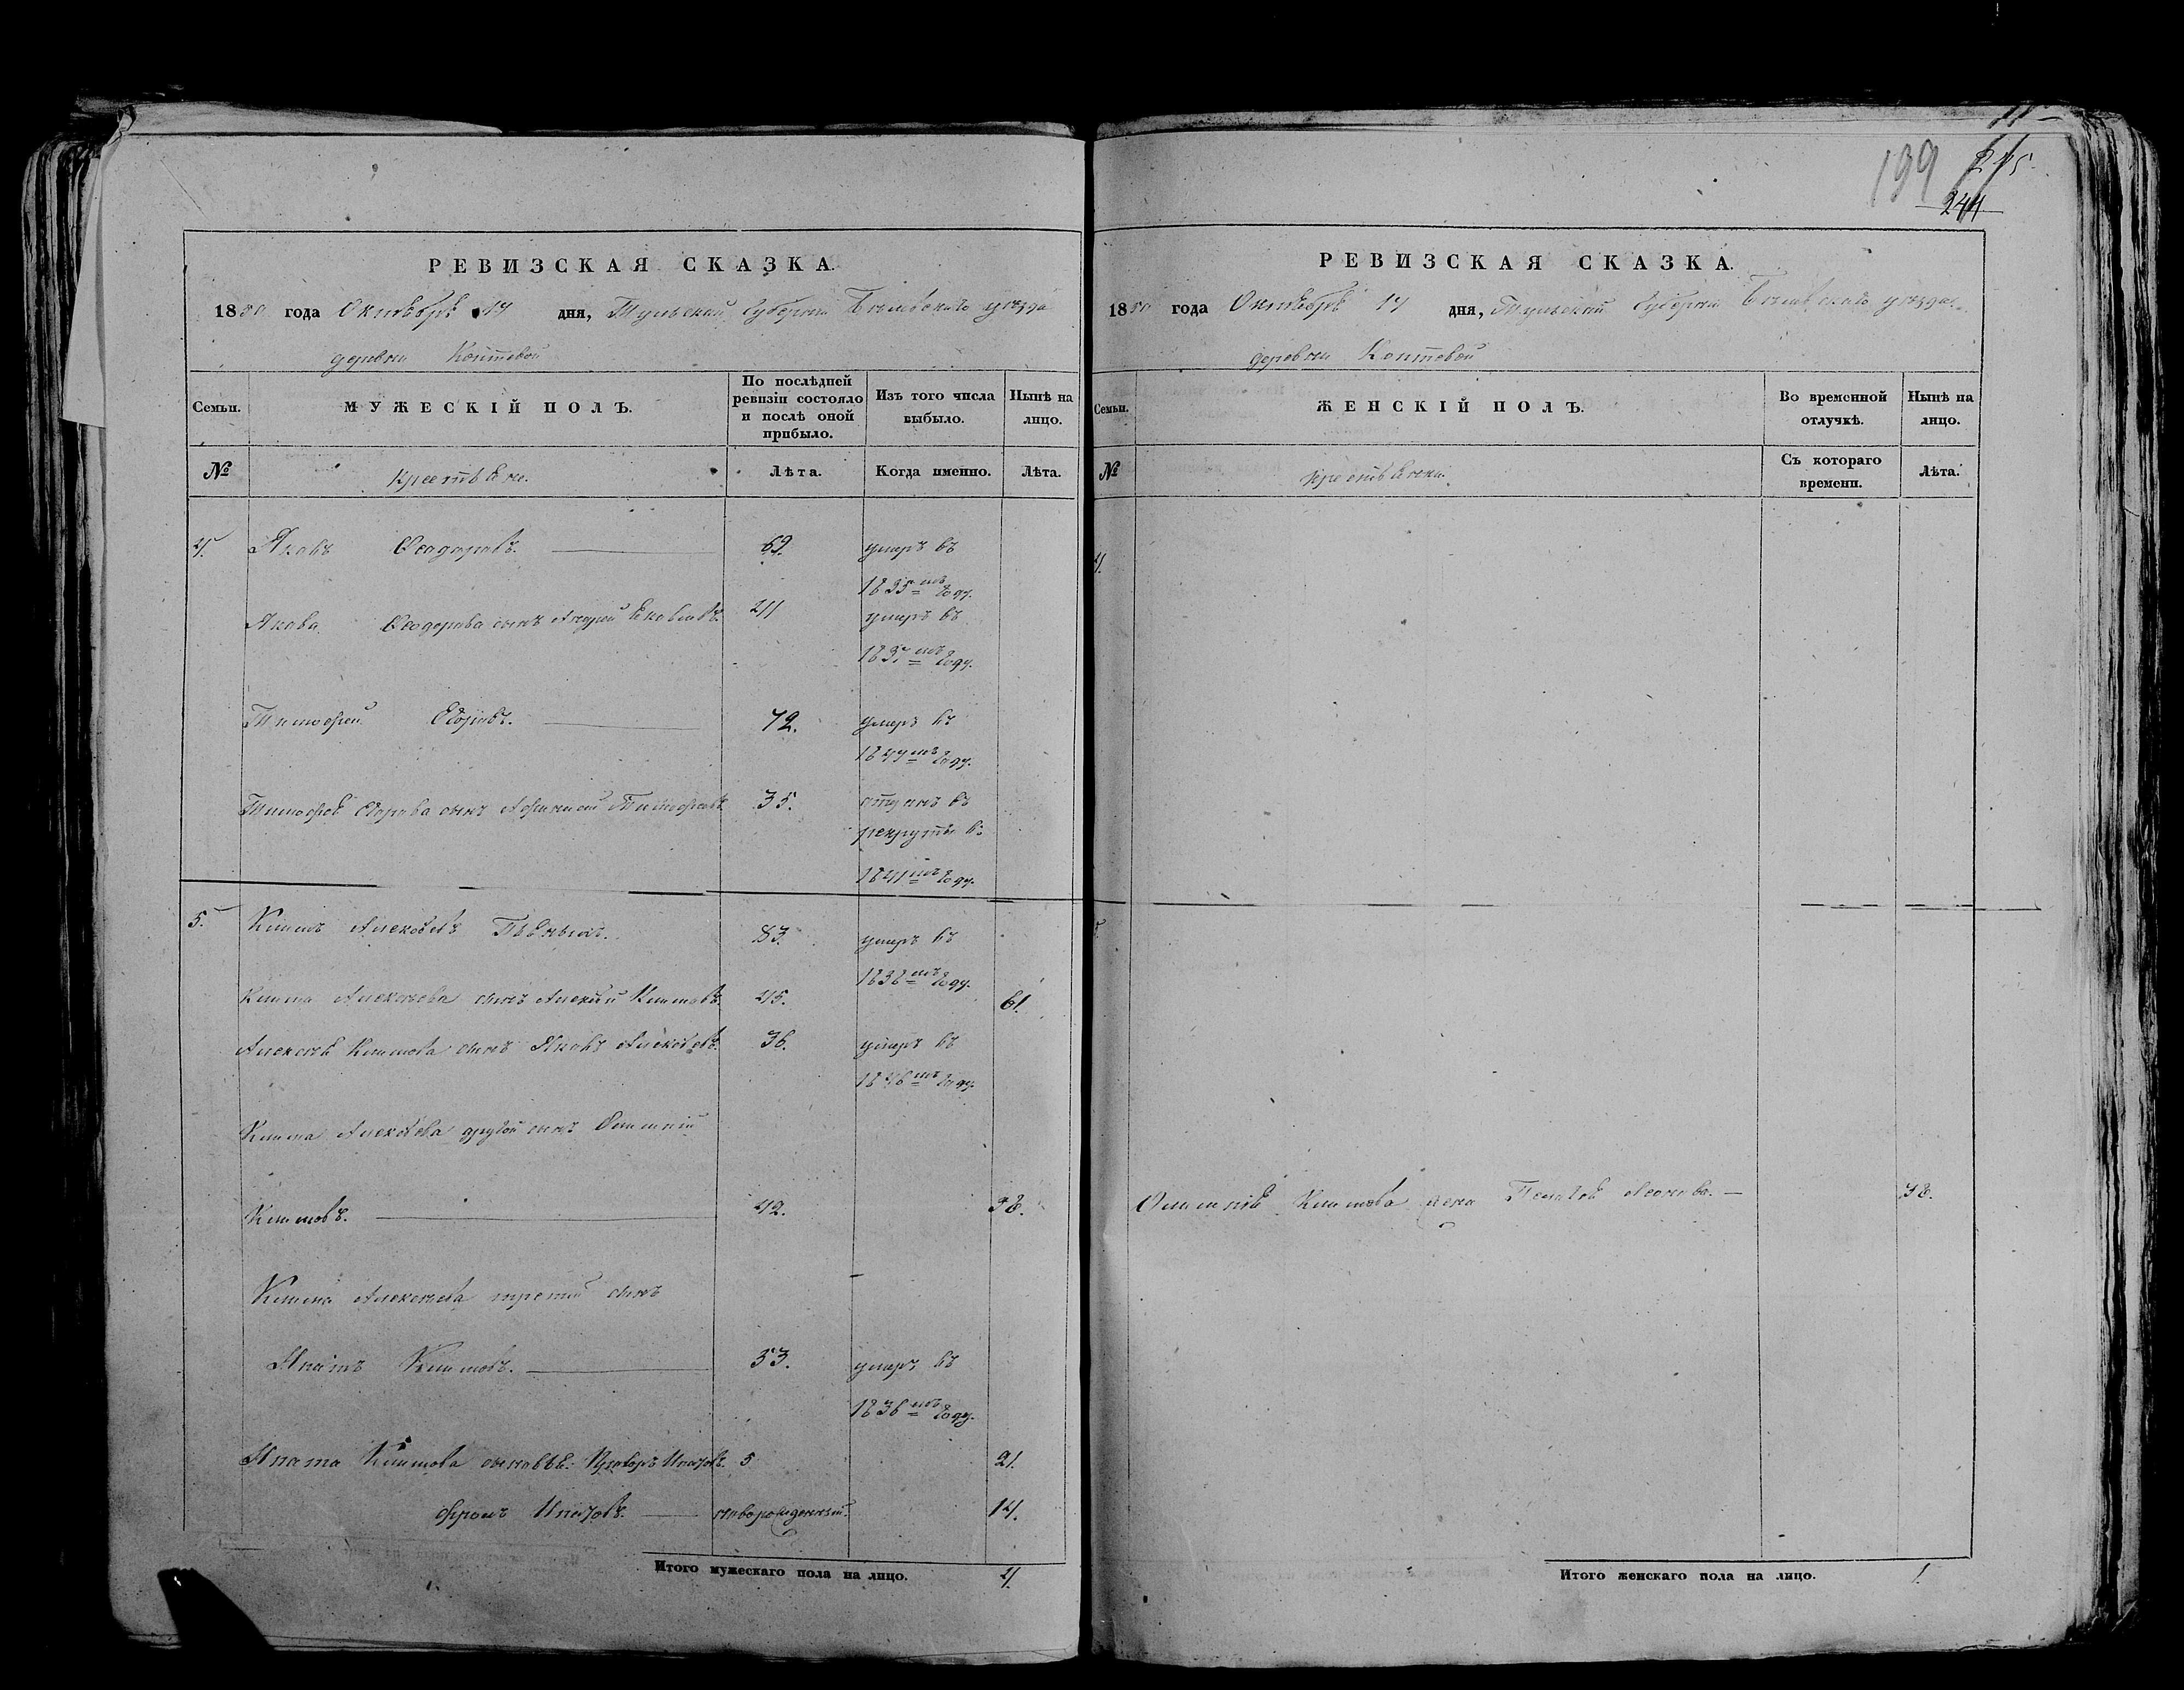 199
275
244
РЕВИЗСКАЯ СКАЗКА.
1850 года Октября 17 дня, Тульской Губернии Бѣлевскаго уѣзда
деревни Коптевой
Семьи.
МУЖЕСКІЙ ПОЛЪ.
По послѣдней ревизіи состояло и послѣ оной прибыло.
Изъ того числа выбыло.
Нынѣ на лицо.
№
Крестьяне.
Лѣта.
Когда именно.
Лѣта.
4. Яковъ Ѳеодоровъ. 69. умеръ въ
1835мъ году.
Якова Ѳеодорова сынъ Андрей Яковлевъ. 41 умеръ въ
1837мъ году.
Тимофей Егоровъ. 72. умеръ въ
1847мъ году.
Тимофея Егорова сынъ Тимофеевъ. 35. отданъ въ
рекруты въ
1841мъ году.
5. Климъ Алексѣевъ 83. умеръ въ
1838мъ году.
Клима Алексѣева сынъ Алексѣй Климовъ. 45. 61.
Алексѣя Климова сынъ Яковъ Алексѣевъ. 36. умеръ въ
1846мъ году.
Клима Алексѣева другой сынъ
Климовъ. 42. 58.
Клима Алексѣева третій сынъ
Ипатъ Климовъ. 33. умеръ въ
1836мъ году.
Ипата Климова сыновья: Ипатовъ. 5 21.
Фролъ Ипатовъ. новорожденный. 14.
Итого мужескаго пола на лицо. 4.
РЕВИЗСКАЯ СКАЗКА.
1850 года Октября 17 дня, Тульской Губерніи Бѣлевскаго уѣзда
деревни Коптевой
Семьи.
ЖЕНСКІЙ ПОЛЪ.
Во временной отлучкѣ.
Нынѣ на лицо.
№
Крестьянки.
Съ котораго времени.
Лѣта.
4.
5.
Климова жена Пелагея 48.
Итого женскаго пола на лицо. 1.